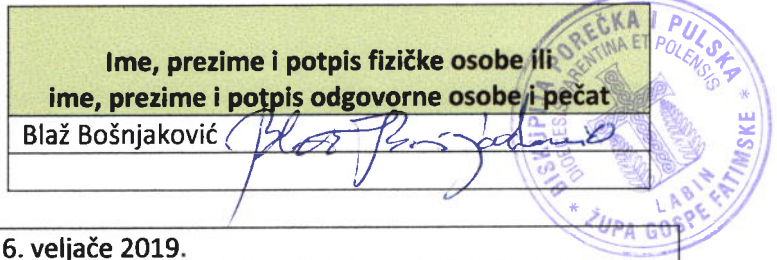 Ime, prezime i potpis fizičke osobe ili
ime, prezime i potpis odgovorne osobe i pečat
Blaž Bošnjaković
BISKUPIJA POREČKA I PULSKA
DIOCESIS PARENTINA ET POLENSIS
LABIN
* ŽUPA GOSPE FATIMSKE *
6. veljače 2019.